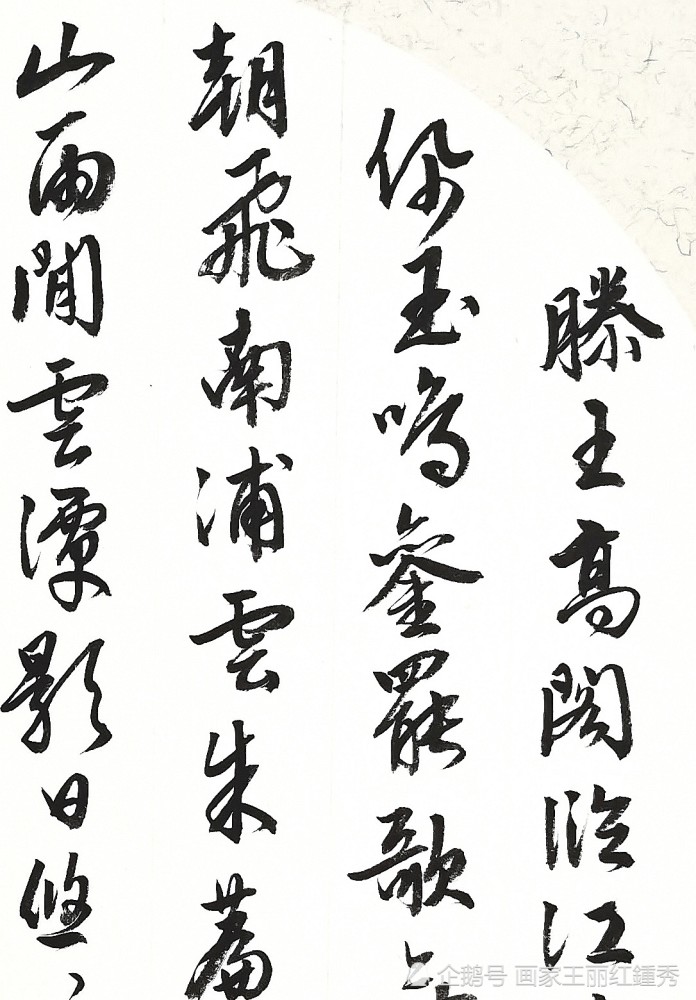 滕王高閣臨江
佩玉鳴鑾罷歌
朝飛南浦雲朱
山雨閒雲潭影日悠
企鹅号 画家王丽红鍾秀